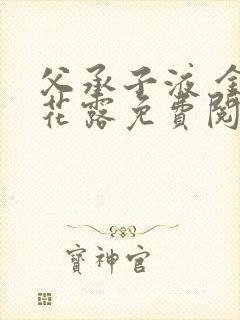 父承子液 金
花露免費閱
寶神官